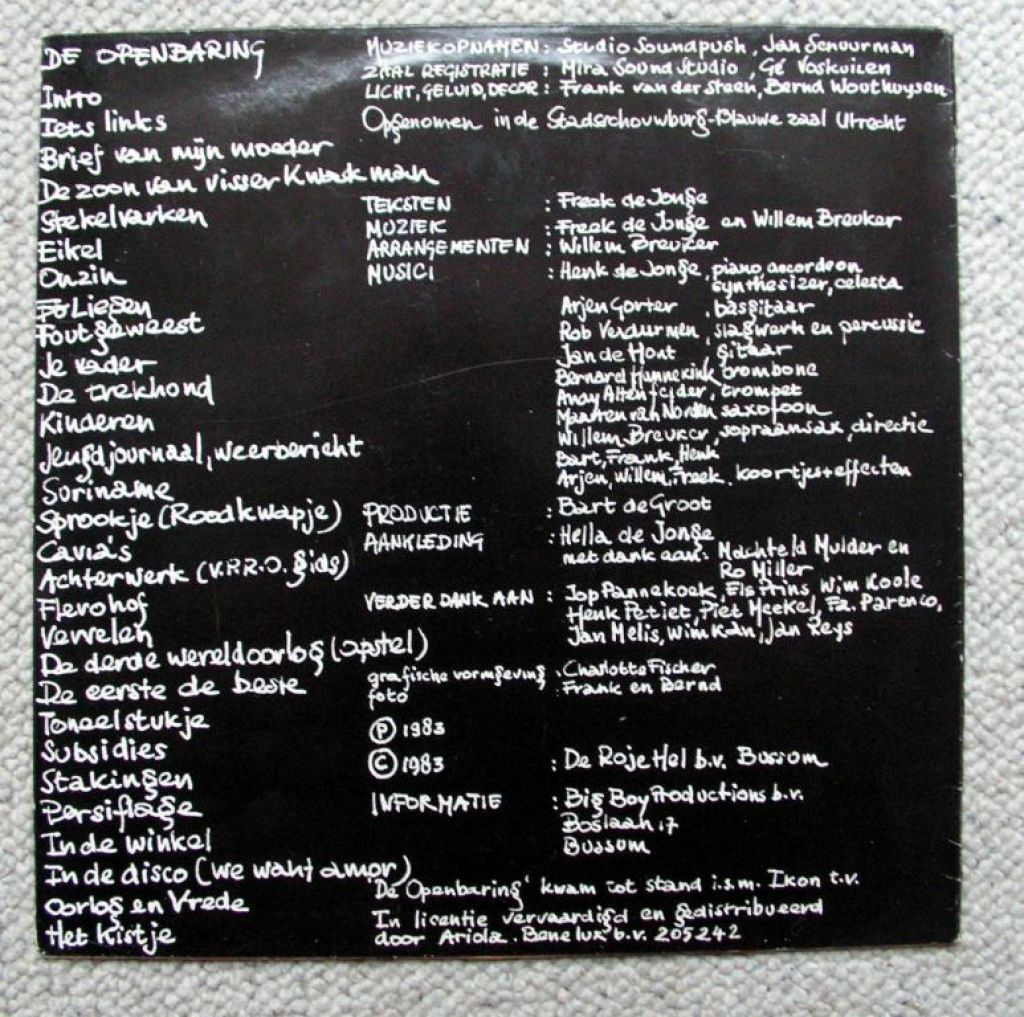 DE OPENBARING
Intro
Iets links
Brief van mijn moeder
De zoon van visser Kwakman
Stekelvarken
Eikel
Onzin
Liegen
Fout geweest
Je vader
De trekhond
Kinderen
Jeugdjournaal, weerbericht
Suriname
Sprookje (Roodkwapje)
Cavia's
Achterwerk (V.P.R.O. gids)
Flevohof
Vervelen
De derde wereldoorlog (opstel)
De eerste de beste
Toneelstukje
Subsidies
Stakingen
Persiflage
In de winkel
In de disco (we want amor)
Oorlog en Vrede
Het Kistje
MUZIEKOPNAMEN : Studio Soundpush, Jan Schuurman
ZAAL REGISTRATIE : Mira Sound Studio, Gé Voskuilen
LICHT, GELUID, DECOR : Frank van der Steen, Bernd Wouthuysen
Opgenomen in de Stadsschouwburg-Blauwe zaal Utrecht
TEKSTEN : Freek de Jonge
MUZIEK : Freek de Jonge en Willem Breuker
ARRANGEMENTEN : Willem Breuker
MUSICI : Henk de Jonge, piano accordeon
synthesizer, celesta
Arjen Gorter, basgitaar
Rob Verdurmen, slagwerk en percussie
Jan de Hont gitaar
Bernard Hunnekink trombone
Andy Altenfelder, trompet
Maarten van Norden saxofoon
Willem Breuker, sopraansax, directie
Bart, Frank, Henk
Arjen, Willem, Freek, koortjes+effecten
PRODUCTIE : Bart de Groot
AANKLEDING : Hella de Jonge
met dank aan: Machteld Mulder en
Ro Miller
VERDER DANK AAN : Jop Pannekoek, Els Prins, Wim Koole
Henk Petiet, Piet Meekel, Fa. Parenco,
Jan Melis, Wim Kan, Jan Keys
grafische vormgeving : Charlotte Fischer
foto : Frank en Bernd
Ⓟ 1983
© 1983 : De Roje Hel b.v. Bussum
INFORMATIE : Big Boy Productions b.v.
Boslaan 17
Bussum
'De Openbaring' kwam tot stand i.s.m. Ikon t.v.
In licentie vervaardigd en gedistribueerd
door Ariola. Benelux b.v. 205242